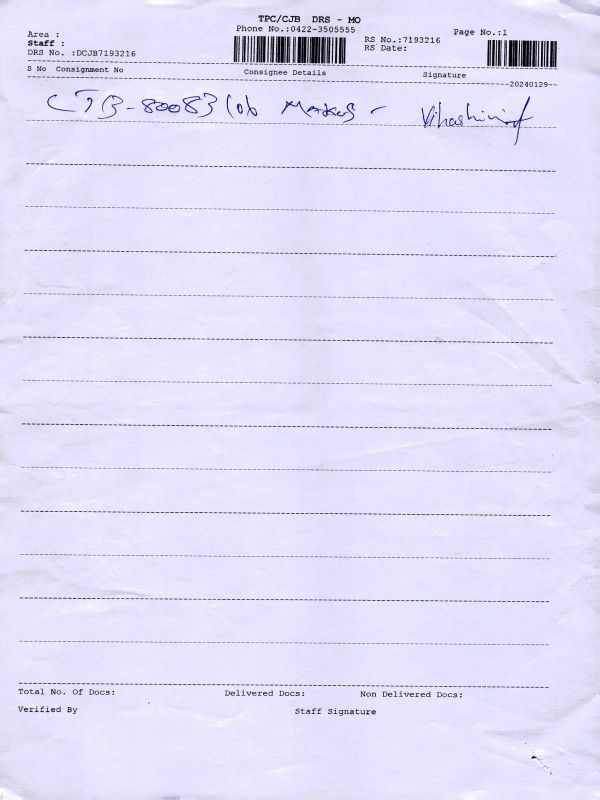 TPC/CJB DRS - MO
Phone No.:0422-3505555
Area :
Staff :
DRS No. :DCJB7193216
RS No.:7193216
RS Date:
Page No.:1
S No Consignment No Consignee Details Signature
20240129
CJB-80083106
Total No. Of Docs: Delivered Docs: Non Delivered Docs:
Verified By Staff Signature